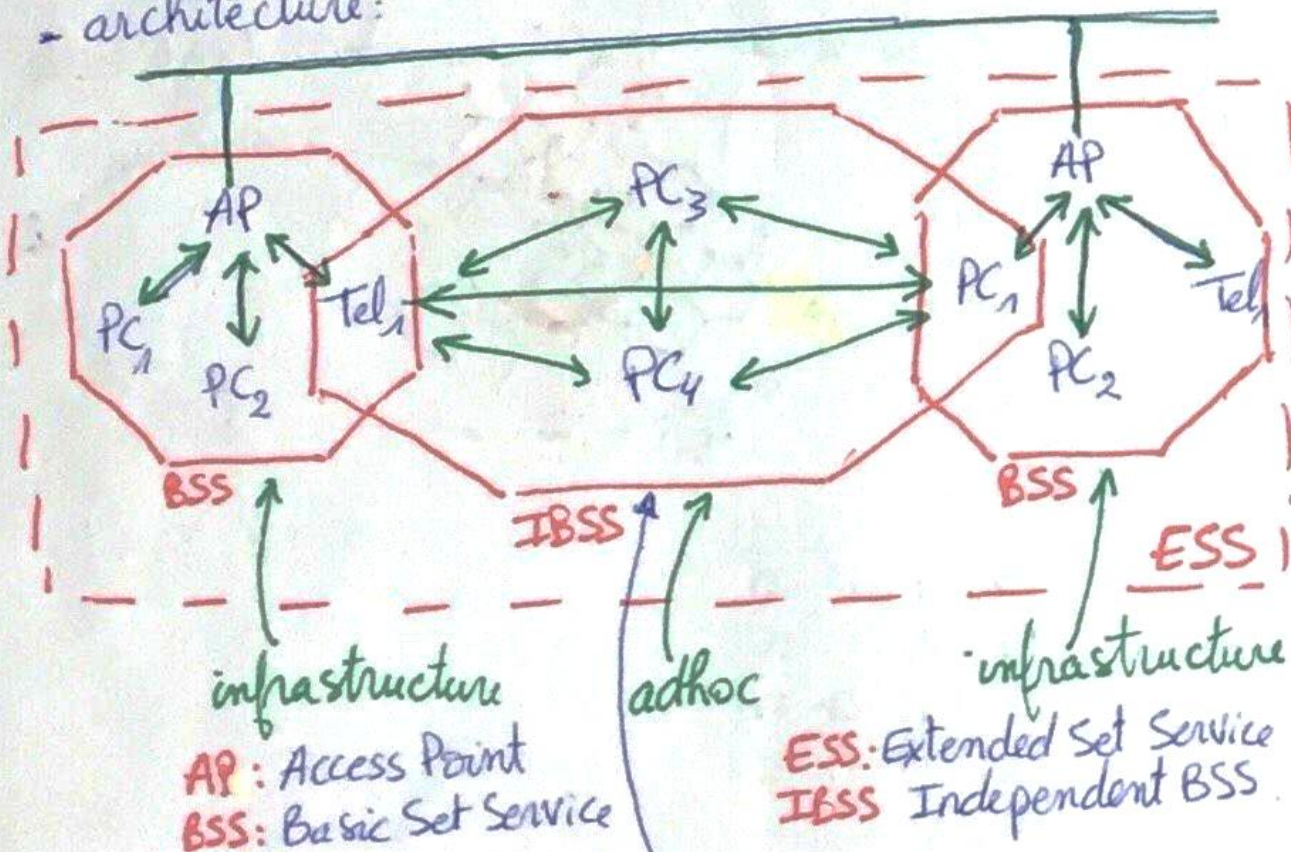 - architecture:
AP
PC₁
PC₂
Tel₁
PC₃
PC₄
AP
PC₁
PC₂
Tel₁
BSS
IBSS
BSS
ESS
infrastructure
adhoc
infrastructure
AP: Access Point
BSS: Basic Set Service
ESS: Extended Set Service
IBSS Independent BSS